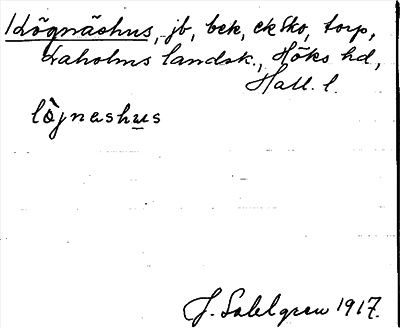 Lögnäshus, jb, bck, ekSko, torp,
Laholms landsk., Höks hd,
Hall. l.
lö̀jnashus
J. Sahlgren 1917.